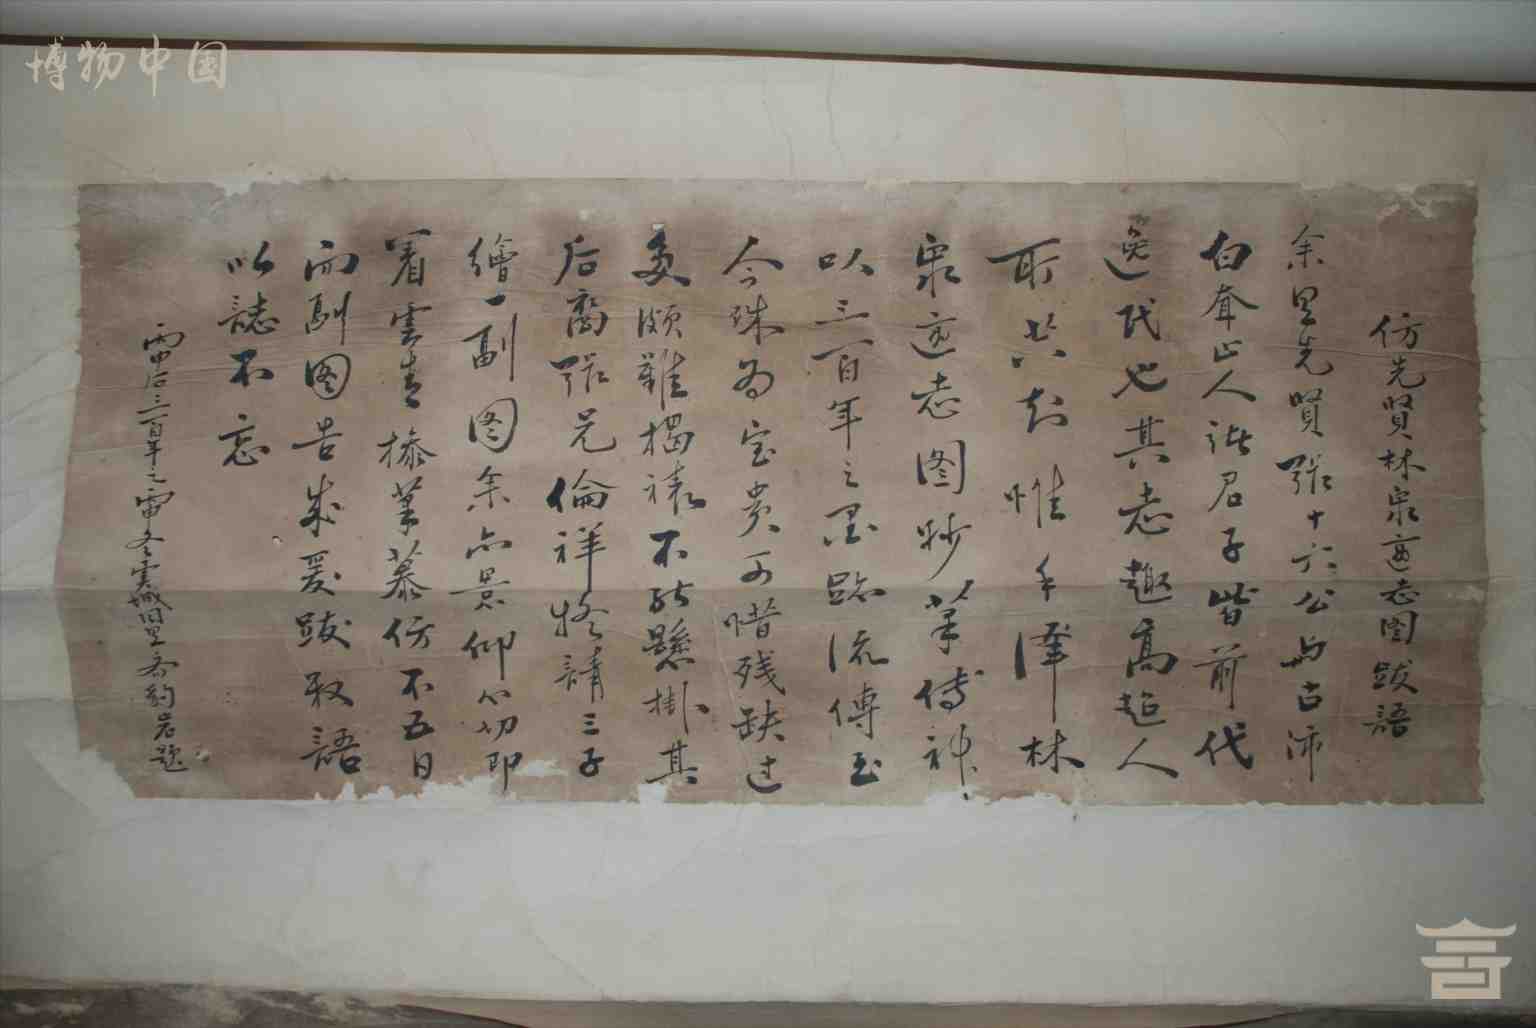 仿先賢林泉適志图跋語
余里先賢張十六公與古沛
白奉山人諸君子皆前代
逸民也其志趣高超人
所共知惟手澤林
泉適志图妙筆傳神
以三百年之墨跡流傳至
今殊为宝贵可惜残缺过
多頗難揭裱不能懸掛其
后裔張兄倫祥攜請三子
繪一副图余亦景仰心切即
着雲青揍筆摹仿不五日
而副图告成爰跋数語
以誌不忘
丙申后三百年之丙申冬雲城旧里
博物中国